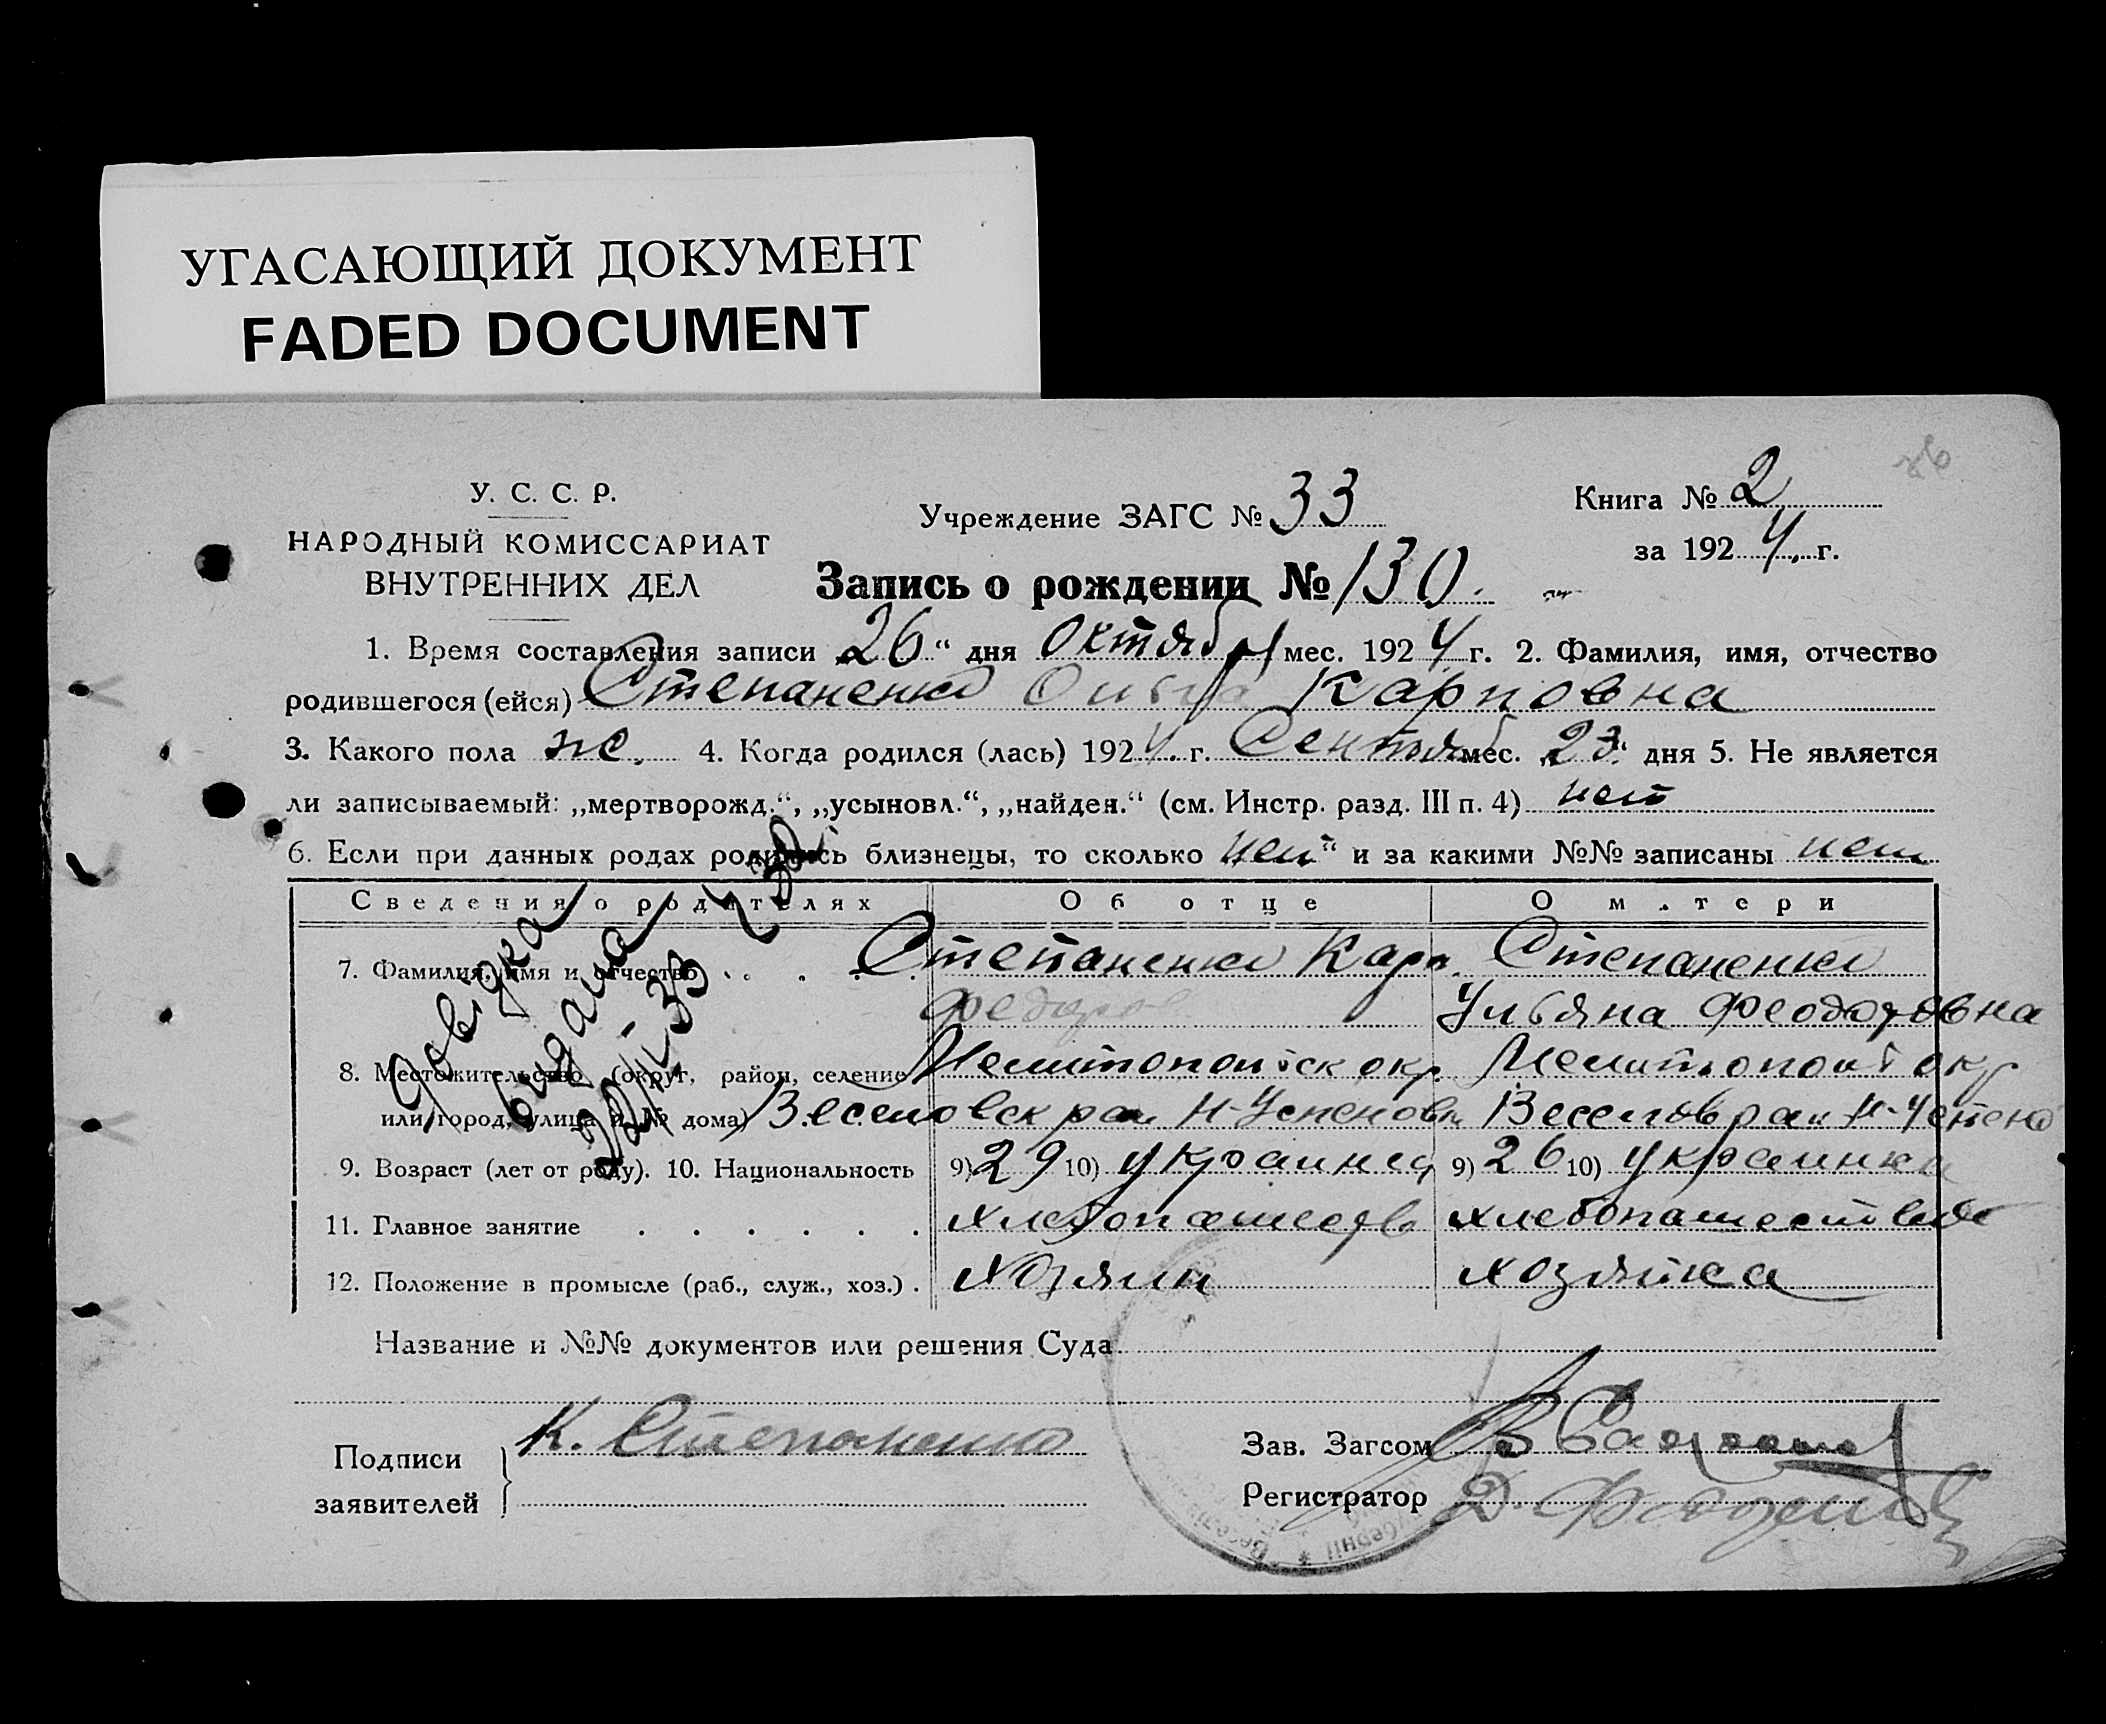 УГАСАЮЩИЙ ДОКУМЕНТ
FADED DOCUMENT
У. С. С. Р.
НАРОДНЫЙ КОМИССАРИАТ
ВНУТРЕННИХ ДЕЛ
Учреждение ЗАГС № 33
Книга № 2
за 1924 г.
Запись о рождении № 130.
1. Время составления записи 26 " дня Октября мес. 1924 г. 2. Фамилия, имя, отчество
родившегося (ейся) Степаненко Ольга Карповна
3. Какого пола ж. 4. Когда родился (лась) 1924 г. Сентяб мес. 23 " дня 5. Не является
ли записываемый: „мертворожд.“, „усыновл.“, „найден.“ (см. Инстр. разд. III п. 4) нет
6. Если при данных родах родилось близнецы, то сколько нет " и за какими №№ записаны нет
Сведения о родителях Об отце О м.тери
7. Фамилия, имя и отчество Степаненко Карп. Степаненко
Федоров Ульяна Феодоровна
8. Местожительство (округ, район, селение Мелитопольск окр. Мелитопол окр
или город, улица и № дома) Веселовск рай Н-Успеновк Веселов рай Н-Успено
9. Возраст (лет от роду). 10. Национальность 9) 29 10) украинец 9) 26 10) украинка
11. Главное занятие хлебопашество хлебопашество
12. Положение в промысле (раб., служ., хоз.) хозяин хозяйка
довідка
видана
Название и №№ документов или решения Суда
Подписи
заявителей
К. Степаненко
Зав. Загсом
Регистратор